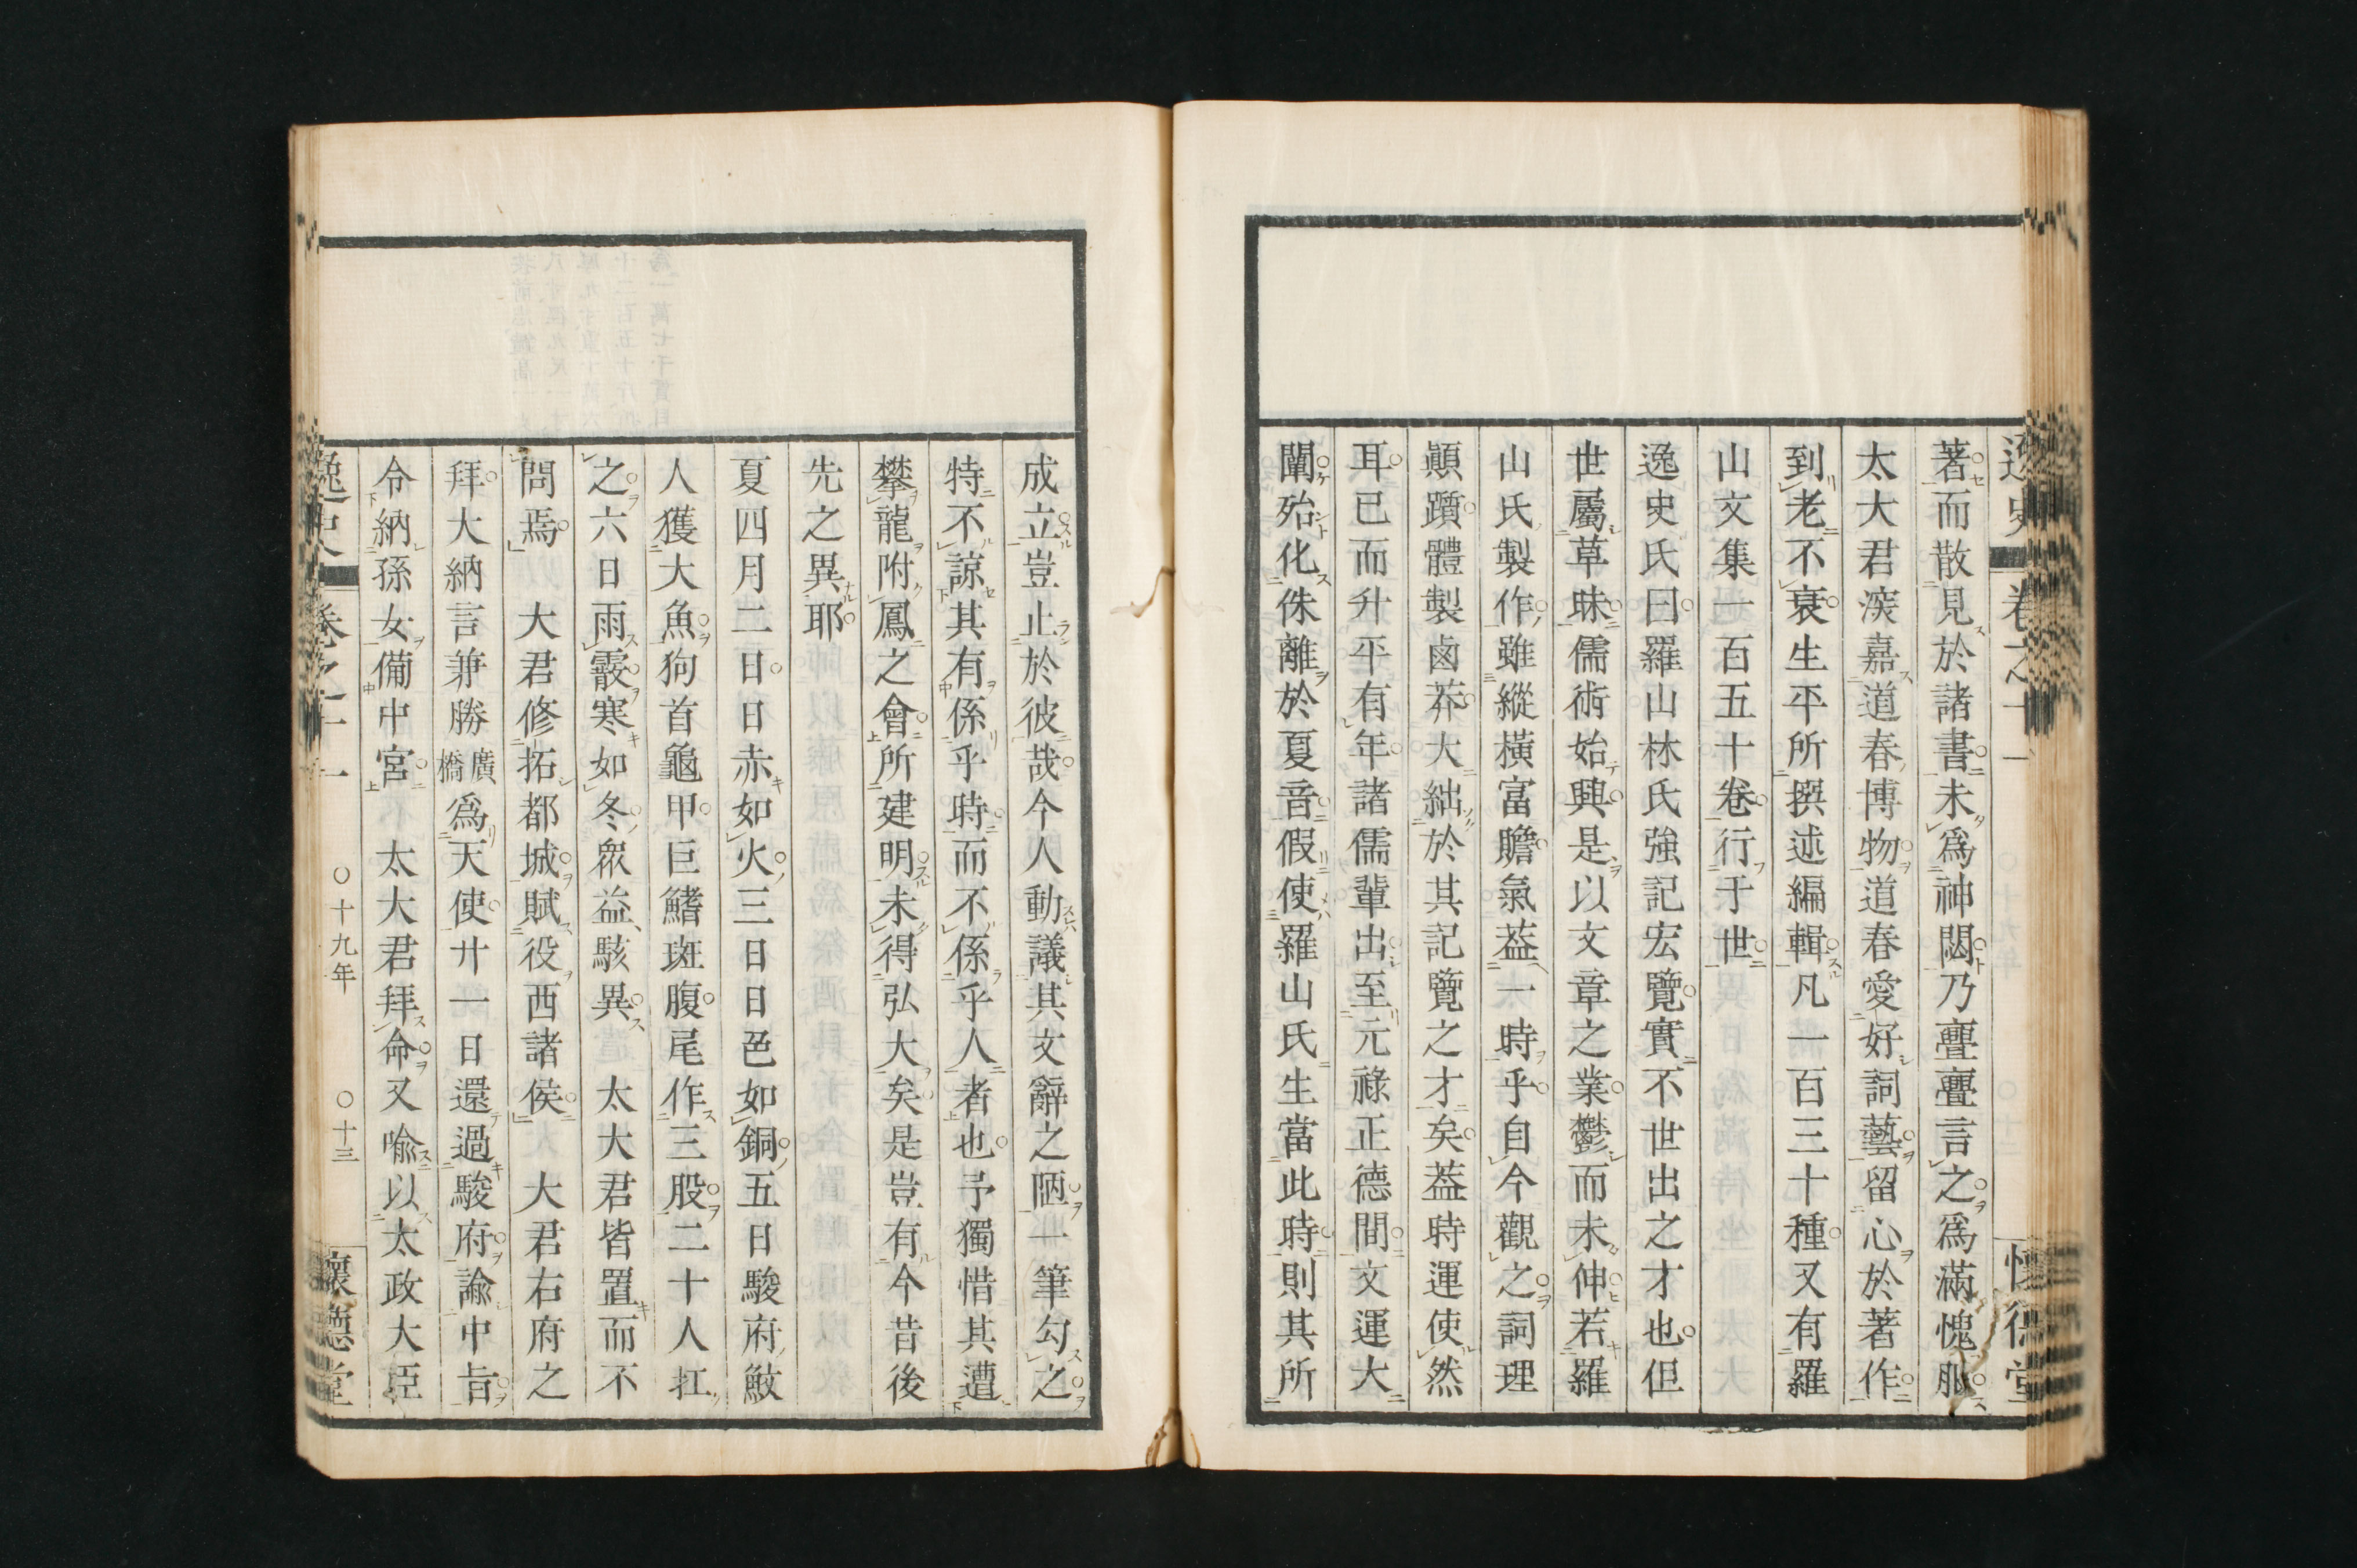 逸史 卷之十一 懷德堂
著而散見於諸書未爲神閟乃亹亹言之爲滿愧服
太大君深嘉道春博物道春愛好詞藝留心於著作
到老不衰生平所撰述編輯凡一百三十種又有羅
山文集一百五十卷行于世
逸史氏曰羅山林氏強記宏覽實不世出之才也但
世屬草昧儒術始興是以文章之業鬱而未伸若羅
山氏製作雖縱橫富贍氣葢一時乎自今觀之詞理
顚躓體製鹵莽大絀於其記覽之才矣葢時運使然
耳已而升平有年諸儒輩出至元祿正德間文運大
闡殆化侏離於夏音假使羅山氏生當此時則其所
成立豈止於彼哉今人動議其文辭之陋一筆勾之
特不諒其有係乎時而不係乎人者也予獨惜其遭
攀龍附鳳之會所建明未得弘大矣是豈有今昔後
先之異耶
夏四月二日日赤如火三日日色如銅五日駿府鮫
人獲大魚狗首龜甲巨鰭斑腹尾作三股二十人扛
之六日雨霰寒如冬眾益駭異 太大君皆置而不
問焉 大君修拓都城賦役西諸侯 大君右府之
拜大納言兼勝廣橋爲天使廿一日還過駿府諭中旨
令納孫女備中宮 太大君拜命又喩以太政大臣
逸史 卷之十一 ○十九年 ○十三 懷德堂